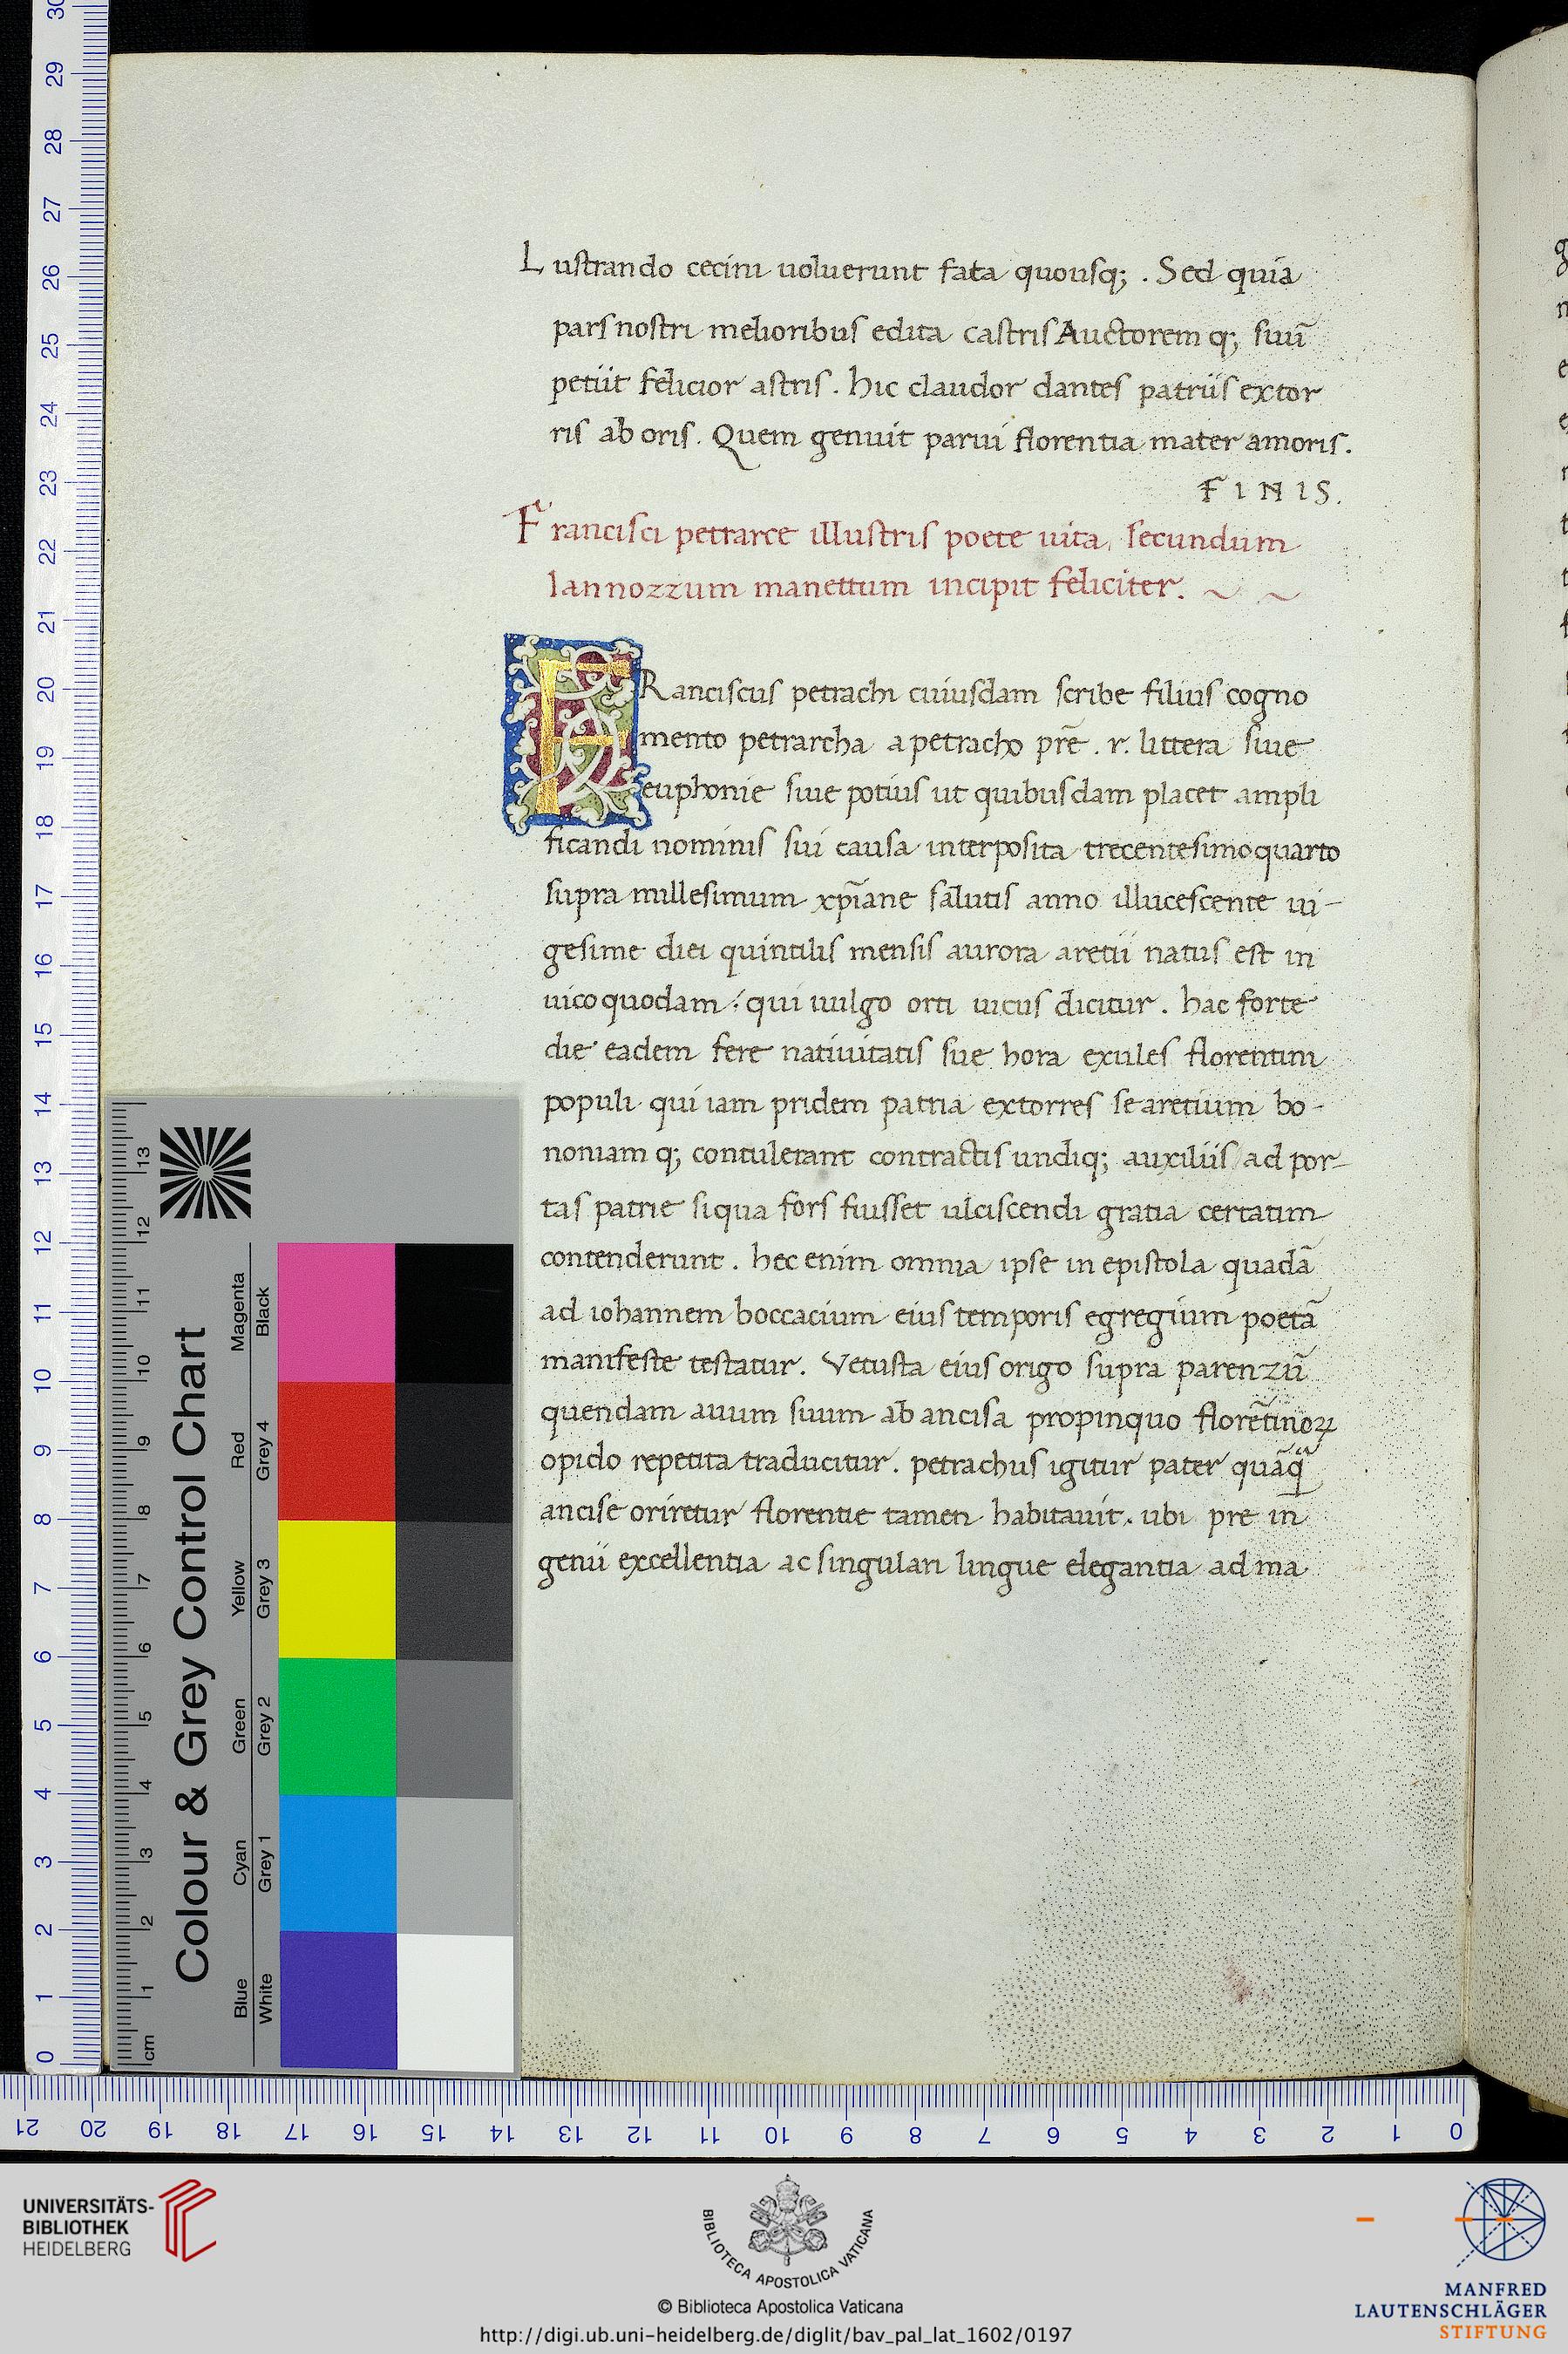 Lustrando cecini uoluerunt fata quousq; . Sed quia
pars nostri melioribus edita castris Auctorem q; suū
petiit felicior astris. hic claudor dantes patriis extor
ris ab oris. Quem genuit parui florentia mater amoris.
FINIS.
Francisci petrarce illustris poete uita, secundum
Iannozzum manettum incipit feliciter.
FRanciscus petrachi cuiusdam scribe filius cogno
mento petrarcha a petracho prē . r. littera siue
euphonie siue potius ut quibusdam placet ampli
ficandi nominis sui causa interposita trecentesimo quarto
supra millesimum xp̄iane salutis anno illucescente ui-
gesime diei quintilis mensis aurora aretii natus est in
uico quodam : qui uulgo orti uicus dicitur. hac forte
die eadem fere natiuitatis sue hora exules florentini
populi qui iam pridem patria extorres se aretium bo-
noniam q; contulerant contractis undiq; auxiliis ad por-
tas patrie si qua fors fuisset ulciscendi gratia certatim
contenderunt. hec enim omnia ipse in epistola quadā
ad iohannem boccacium eius temporis egregium poetā
manifeste testatur. Vetusta eius origo supra parenzū
quendam auum suum ab ancisa propinquo florētinoꝝ
opido repetita traducitur. petrachus igitur pater quāq̄
ancise oriretur florentie tamen habitauit. ubi pre in
genii excellentia ac singulari lingue elegantia ad ma
30 29 28 27 26 25 24 23 22 21 20 19 18 17 16 15 14 13 12 11 10 9 8 7 6 5 4 3 2 1 0
Colour & Grey Control Chart
Magenta Red Yellow Green Cyan Blue
Black Grey 4 Grey 3 Grey 2 Grey 1 White
13 12 11 10 9 8 7 6 5 4 3 2 1 cm
21 20 19 18 17 16 15 14 13 12 11 10 9 8 7 6 5 4 3 2 1 0
UNIVERSITÄTS-
BIBLIOTHEK
HEIDELBERG
BIBLIOTECA APOSTOLICA VATICANA
© Biblioteca Apostolica Vaticana
http://digi.ub.uni-heidelberg.de/diglit/bav_pal_lat_1602/0197
MANFRED
LAUTENSCHLÄGER
STIFTUNG